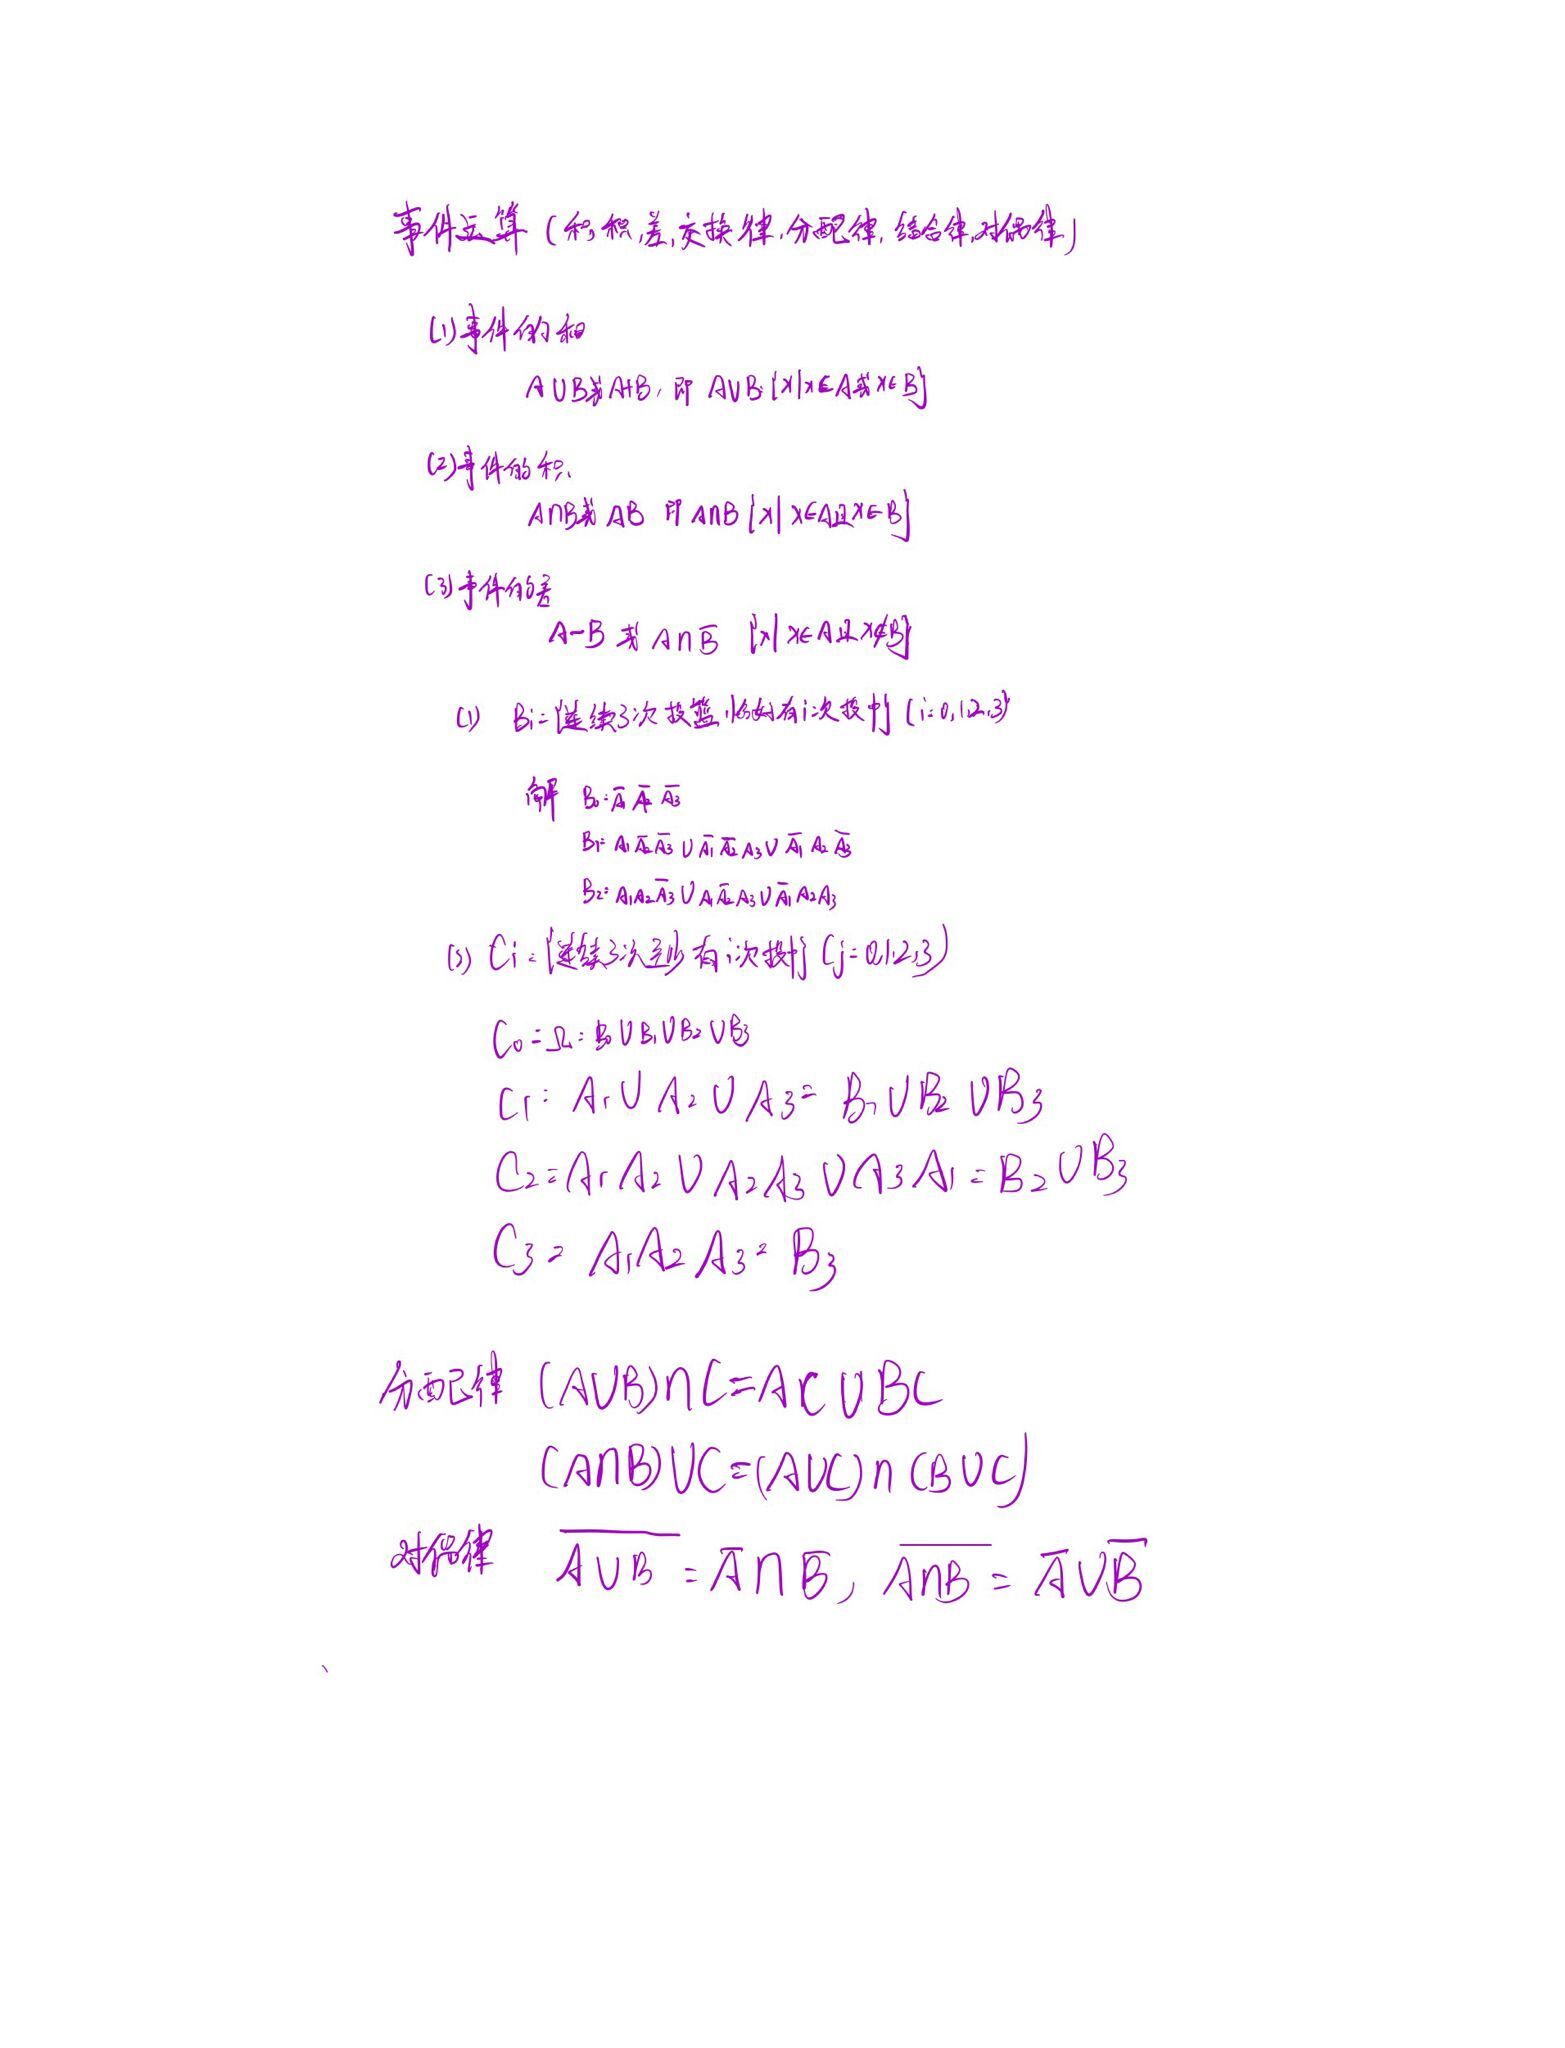 事件运算 (和,积,差,交换律,分配律,结合律,对偶律)
(1)事件的和
A∪B或A+B, 即 A∪B {x|x∈A或x∈B}
(2)事件的积
A∩B或 AB 即 A∩B {x|x∈A且x∈B}
(3)事件的差
A-B 或 A∩B̅ {x|x∈A且x∉B}
(1) Bi={连续3次投篮,恰好有i次投中} (i=0,1,2,3)
解 B₀=A̅₁ A̅₂ A̅₃
B₁= A₁A̅₂A̅₃ ∪ A̅₁A̅₂A₃ ∪ A̅₁A₂A̅₃
B₂= A₁A₂A̅₃ ∪ A₁A̅₂A₃ ∪ A̅₁A₂A₃
Ci={连续3次至少有i次投中} (j=0,1,2,3)
C₀=Ω=B₀∪B₁∪B₂∪B₃
C₁= A₁∪A₂∪A₃= B₁∪B₂∪B₃
C₂=A₁A₂∪A₂A₃∪A₃A₁=B₂∪B₃
C₃= A₁A₂A₃= B₃
分配律 (A∪B)∩C=AC∪BC
(A∩B)∪C=(A∪C)∩(B∪C)
对偶律 A̅∪̅B̅ = A̅∩B̅, A̅∩̅B̅ = A̅∪B̅